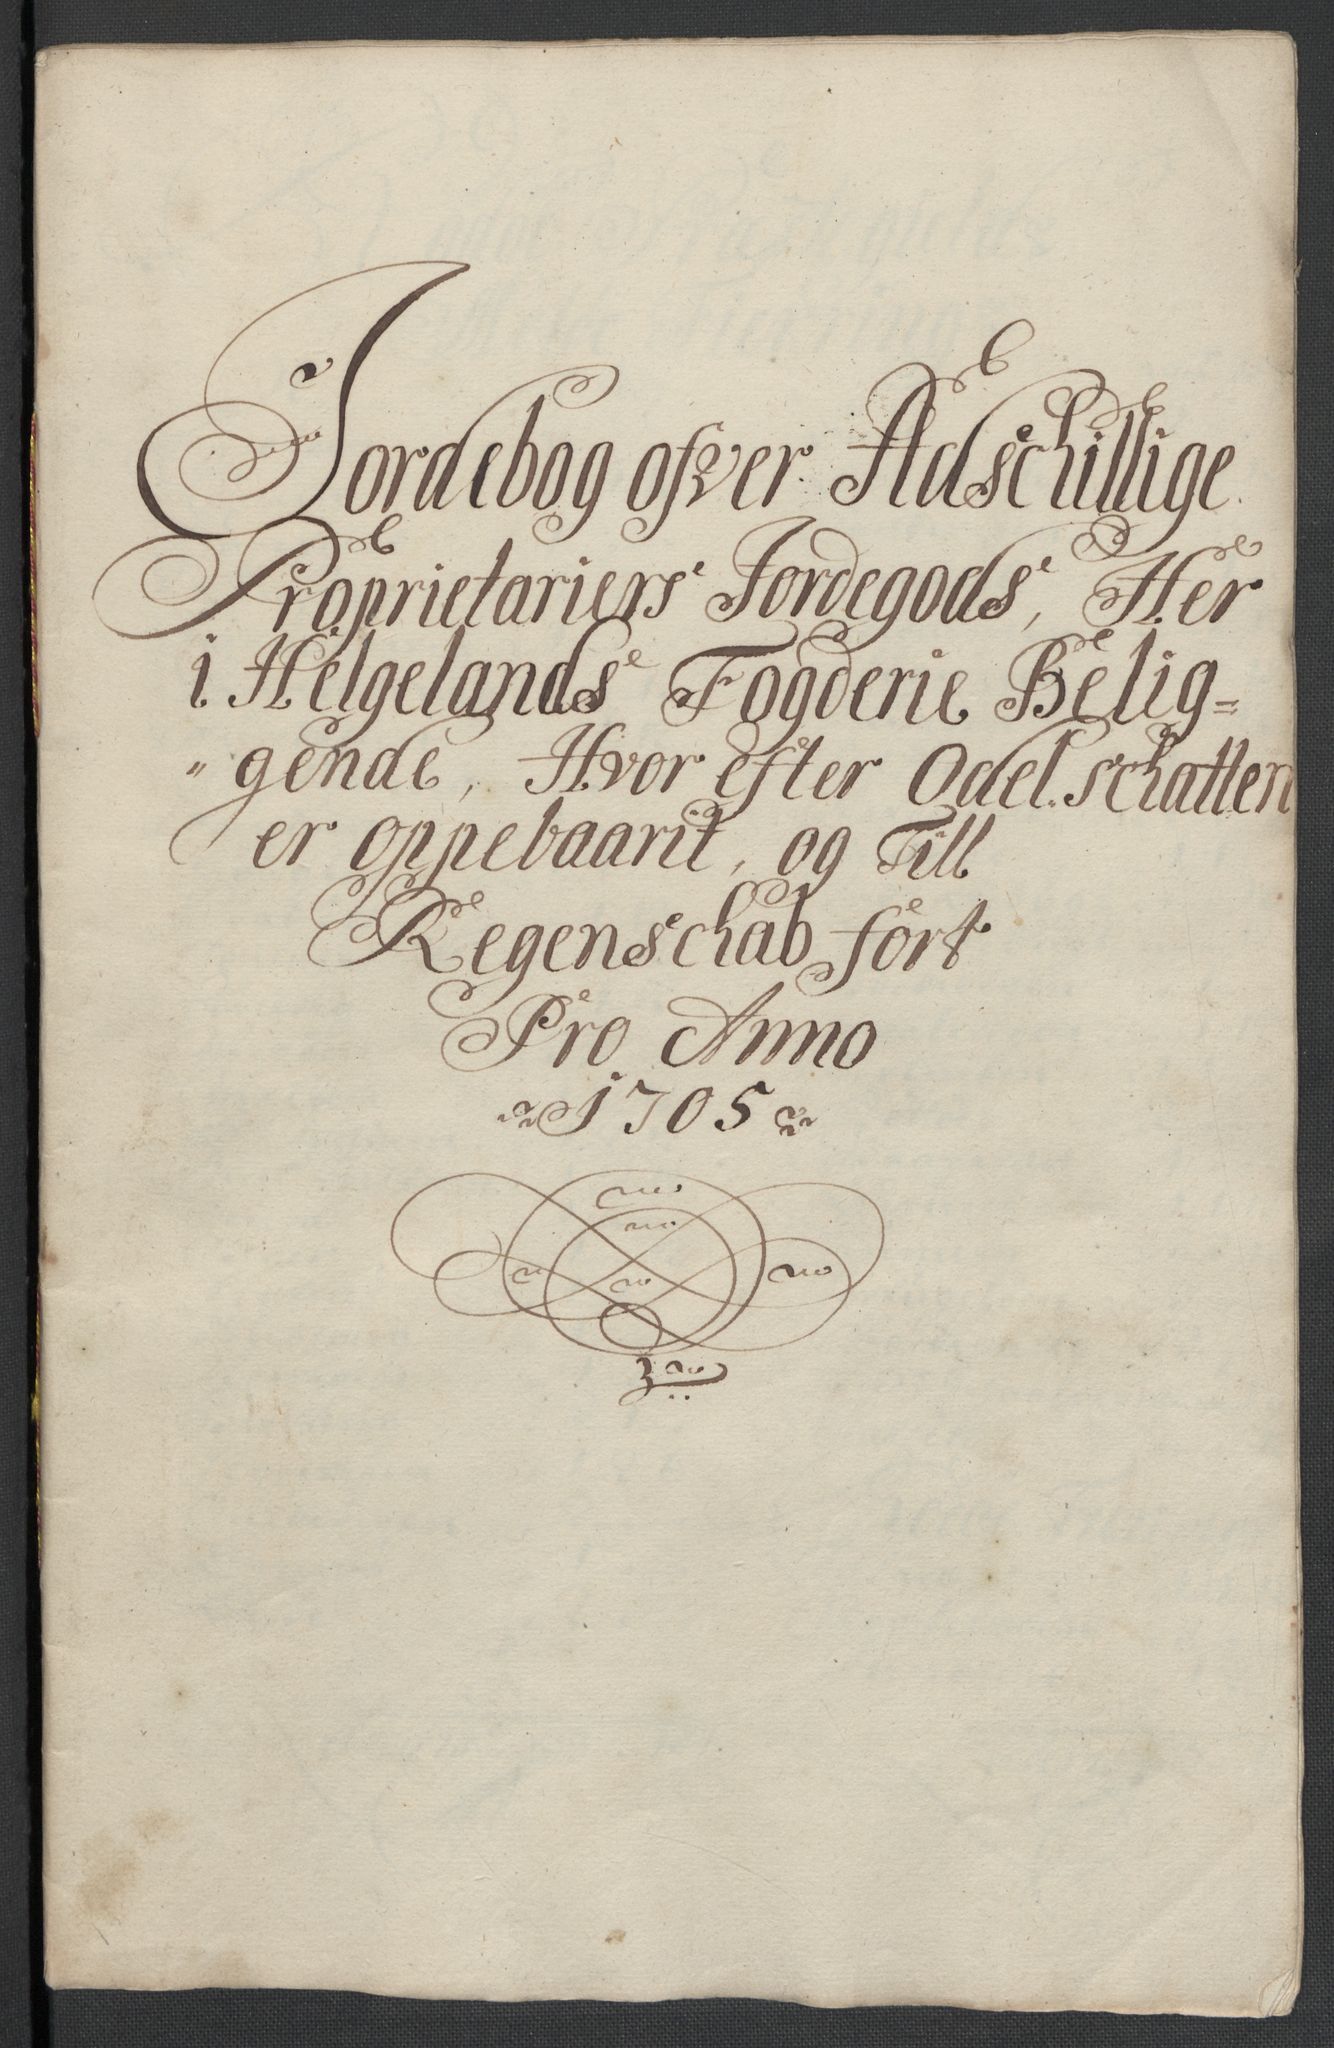 Jordebog ofver Adschillige
Proprietariers Jordegods, Her
i Helgelands Fogderie Belig=
„ gende, Hvor efter Odel. schatten
er oppebaarit, og Till
Regenschab ført
Pro Anno
1705